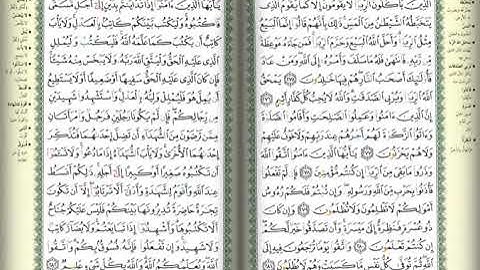 الَّذِينَ يَأْكُلُونَ الرِّبَا لَا يَقُومُونَ إِلَّا كَمَا يَقُومُ الَّذِي
يَتَخَبَّطُهُ الشَّيْطَانُ مِنَ الْمَسِّ ذَٰلِكَ بِأَنَّهُمْ قَالُوا إِنَّمَا الْبَيْعُ
مِثْلُ الرِّبَا وَأَحَلَّ اللَّهُ الْبَيْعَ وَحَرَّمَ الرِّبَا فَمَن جَاءَهُ مَوْعِظَةٌ
مِّن رَّبِّهِ فَانتَهَىٰ فَلَهُ مَا سَلَفَ وَأَمْرُهُ إِلَى اللَّهِ وَمَنْ عَادَ
فَأُولَٰئِكَ أَصْحَابُ النَّارِ هُمْ فِيهَا خَالِدُونَ ٢٧٥ يَمْحَقُ
اللَّهُ الرِّبَا وَيُرْبِي الصَّدَقَاتِ وَاللَّهُ لَا يُحِبُّ كُلَّ كَفَّارٍ أَثِيمٍ ٢٧٦
إِنَّ الَّذِينَ آمَنُوا وَعَمِلُوا الصَّالِحَاتِ وَأَقَامُوا الصَّلَاةَ
وَآتَوُا الزَّكَاةَ لَهُمْ أَجْرُهُمْ عِندَ رَبِّهِمْ وَلَا خَوْفٌ عَلَيْهِمْ
وَلَا هُمْ يَحْزَنُونَ ٢٧٧ يَا أَيُّهَا الَّذِينَ آمَنُوا اتَّقُوا اللَّهَ
وَذَرُوا مَا بَقِيَ مِنَ الرِّبَا إِن كُنتُم مُّؤْمِنِينَ ٢٧٨ فَإِن لَّمْ تَفْعَلُوا
فَأْذَنُوا بِحَرْبٍ مِّنَ اللَّهِ وَرَسُولِهِ وَإِن تُبْتُمْ فَلَكُمْ رُءُوسُ
أَمْوَالِكُمْ لَا تَظْلِمُونَ وَلَا تُظْلَمُونَ ٢٧٩ وَإِن كَانَ
ذُو عُسْرَةٍ فَنَظِرَةٌ إِلَىٰ مَيْسَرَةٍ وَأَن تَصَدَّقُوا خَيْرٌ لَّكُمْ
إِن كُنتُمْ تَعْلَمُونَ ٢٨٠ وَاتَّقُوا يَوْمًا تُرْجَعُونَ فِيهِ إِلَى اللَّهِ
ثُمَّ تُوَفَّىٰ كُلُّ نَفْسٍ مَّا كَسَبَتْ وَهُمْ لَا يُظْلَمُونَ ٢٨١
يَا أَيُّهَا الَّذِينَ آمَنُوا إِذَا تَدَايَنتُم بِدَيْنٍ إِلَىٰ أَجَلٍ مُّسَمًّى
فَاكْتُبُوهُ وَلْيَكْتُب بَّيْنَكُمْ كَاتِبٌ بِالْعَدْلِ وَلَا يَأْبَ
كَاتِبٌ أَن يَكْتُبَ كَمَا عَلَّمَهُ اللَّهُ فَلْيَكْتُبْ وَلْيُمْلِلِ
الَّذِي عَلَيْهِ الْحَقُّ وَلْيَتَّقِ اللَّهَ رَبَّهُ وَلَا يَبْخَسْ مِنْهُ شَيْئًا
فَإِن كَانَ الَّذِي عَلَيْهِ الْحَقُّ سَفِيهًا أَوْ ضَعِيفًا أَوْ لَا يَسْتَطِيعُ
أَن يُمِلَّ هُوَ فَلْيُمْلِلْ وَلِيُّهُ بِالْعَدْلِ وَاسْتَشْهِدُوا شَهِيدَيْنِ
مِن رِّجَالِكُمْ فَإِن لَّمْ يَكُونَا رَجُلَيْنِ فَرَجُلٌ وَامْرَأَتَانِ
مِمَّن تَرْضَوْنَ مِنَ الشُّهَدَاءِ أَن تَضِلَّ إِحْدَاهُمَا فَتُذَكِّرَ
إِحْدَاهُمَا الْأُخْرَىٰ وَلَا يَأْبَ الشُّهَدَاءُ إِذَا مَا دُعُوا وَلَا تَسْأَمُوا
أَن تَكْتُبُوهُ صَغِيرًا أَوْ كَبِيرًا إِلَىٰ أَجَلِهِ ذَٰلِكُمْ أَقْسَطُ
عِندَ اللَّهِ وَأَقْوَمُ لِلشَّهَادَةِ وَأَدْنَىٰ أَلَّا تَرْتَابُوا إِلَّا أَن تَكُونَ
تِجَارَةً حَاضِرَةً تُدِيرُونَهَا بَيْنَكُمْ فَلَيْسَ عَلَيْكُمْ جُنَاحٌ
أَلَّا تَكْتُبُوهَا وَأَشْهِدُوا إِذَا تَبَايَعْتُمْ وَلَا يُضَارَّ كَاتِبٌ
وَلَا شَهِيدٌ وَإِن تَفْعَلُوا فَإِنَّهُ فُسُوقٌ بِكُمْ وَاتَّقُوا
اللَّهَ وَيُعَلِّمُكُمُ اللَّهُ وَاللَّهُ بِكُلِّ شَيْءٍ عَلِيمٌ ٢٨٢